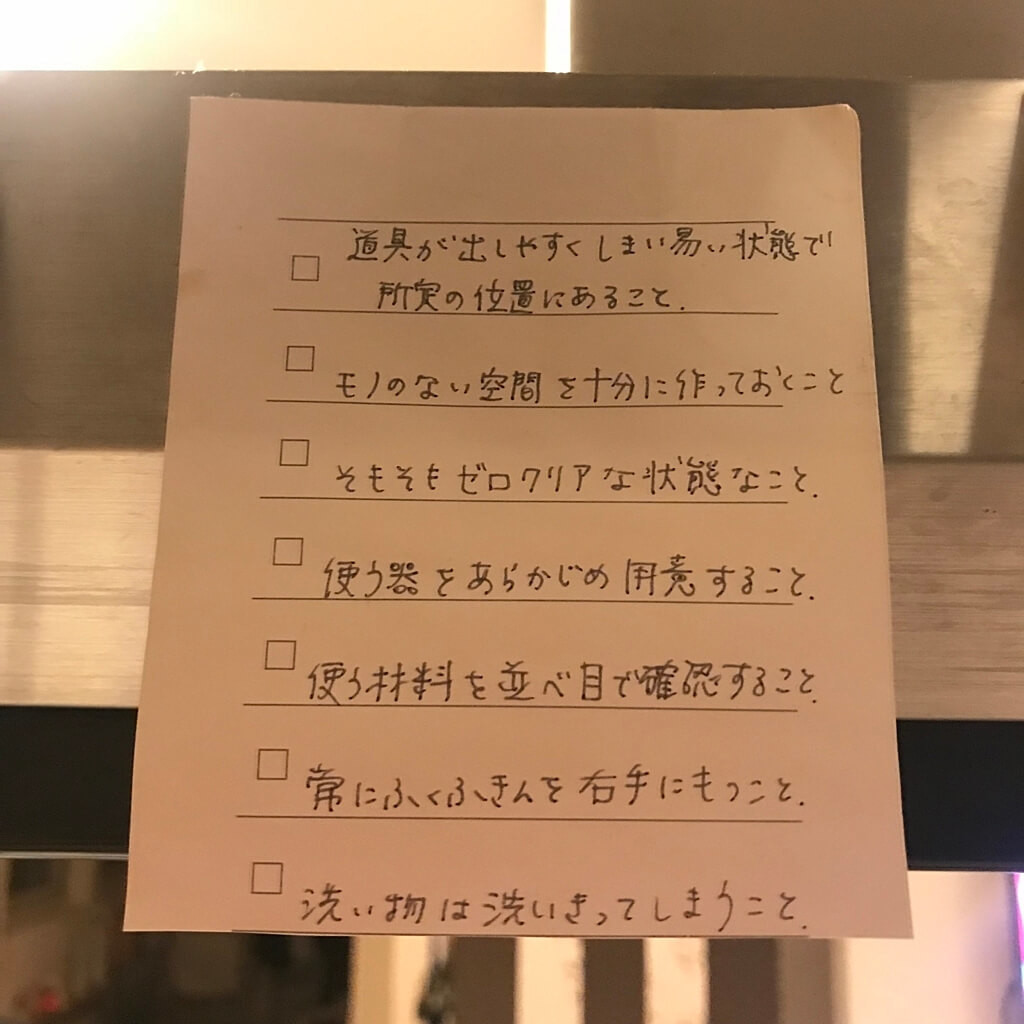 道具が出しやすくしまい易い状態で
所定の位置にあること.
モノのない空間を十分に作っておくこと
そもそもゼロクリアな状態なこと.
使う器をあらかじめ用意すること.
使う材料を並べ目で確認すること.
常にふくふきんを右手にもつこと.
洗い物は洗いきってしまうこと.